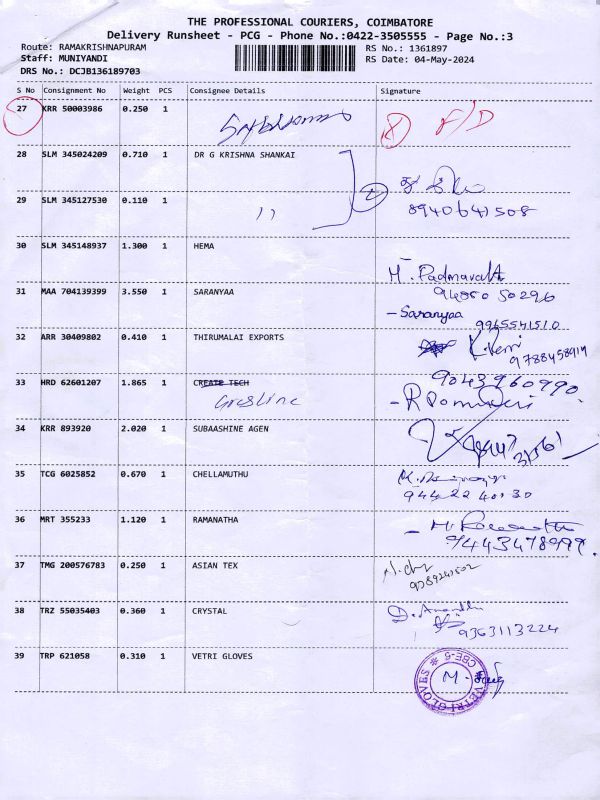 THE PROFESSIONAL COURIERS, COIMBATORE
Delivery Runsheet - PCG - Phone No.:0422-3505555 - Page No.:3
Route: RAMAKRISHNAPURAM RS No.: 1361897
Staff: MUNIYANDI RS Date: 04-May-2024
DRS No.: DCJB136189703
S No Consignment No Weight PCS Consignee Details Signature
27 KRR 50003986 0.250 1 F/D
28 SLM 345024209 0.710 1 DR G KRISHNA SHANKAI
8940641508
29 SLM 345127530 0.110 1 ,,
30 SLM 345148937 1.300 1 HEMA
M. Padmavathi
94880 50296
31 MAA 704139399 3.550 1 SARANYAA
- Saranyaa
9965541510
32 ARR 30409802 0.410 1 THIRUMALAI EXPORTS
9788458914
33 HRD 62601207 1.865 1 CREATE TECH
9043960990
34 KRR 893920 2.020 1 SUBAASHINE AGEN
35 TCG 6025852 0.670 1 CHELLAMUTHU
94422 40130
36 MRT 355233 1.120 1 RAMANATHA
37 TMG 200576783 0.250 1 ASIAN TEX
38 TRZ 55035403 0.360 1 CRYSTAL
9363113224
39 TRP 621058 0.310 1 VETRI GLOVES
VETRI GLOVES * CBE-6 *